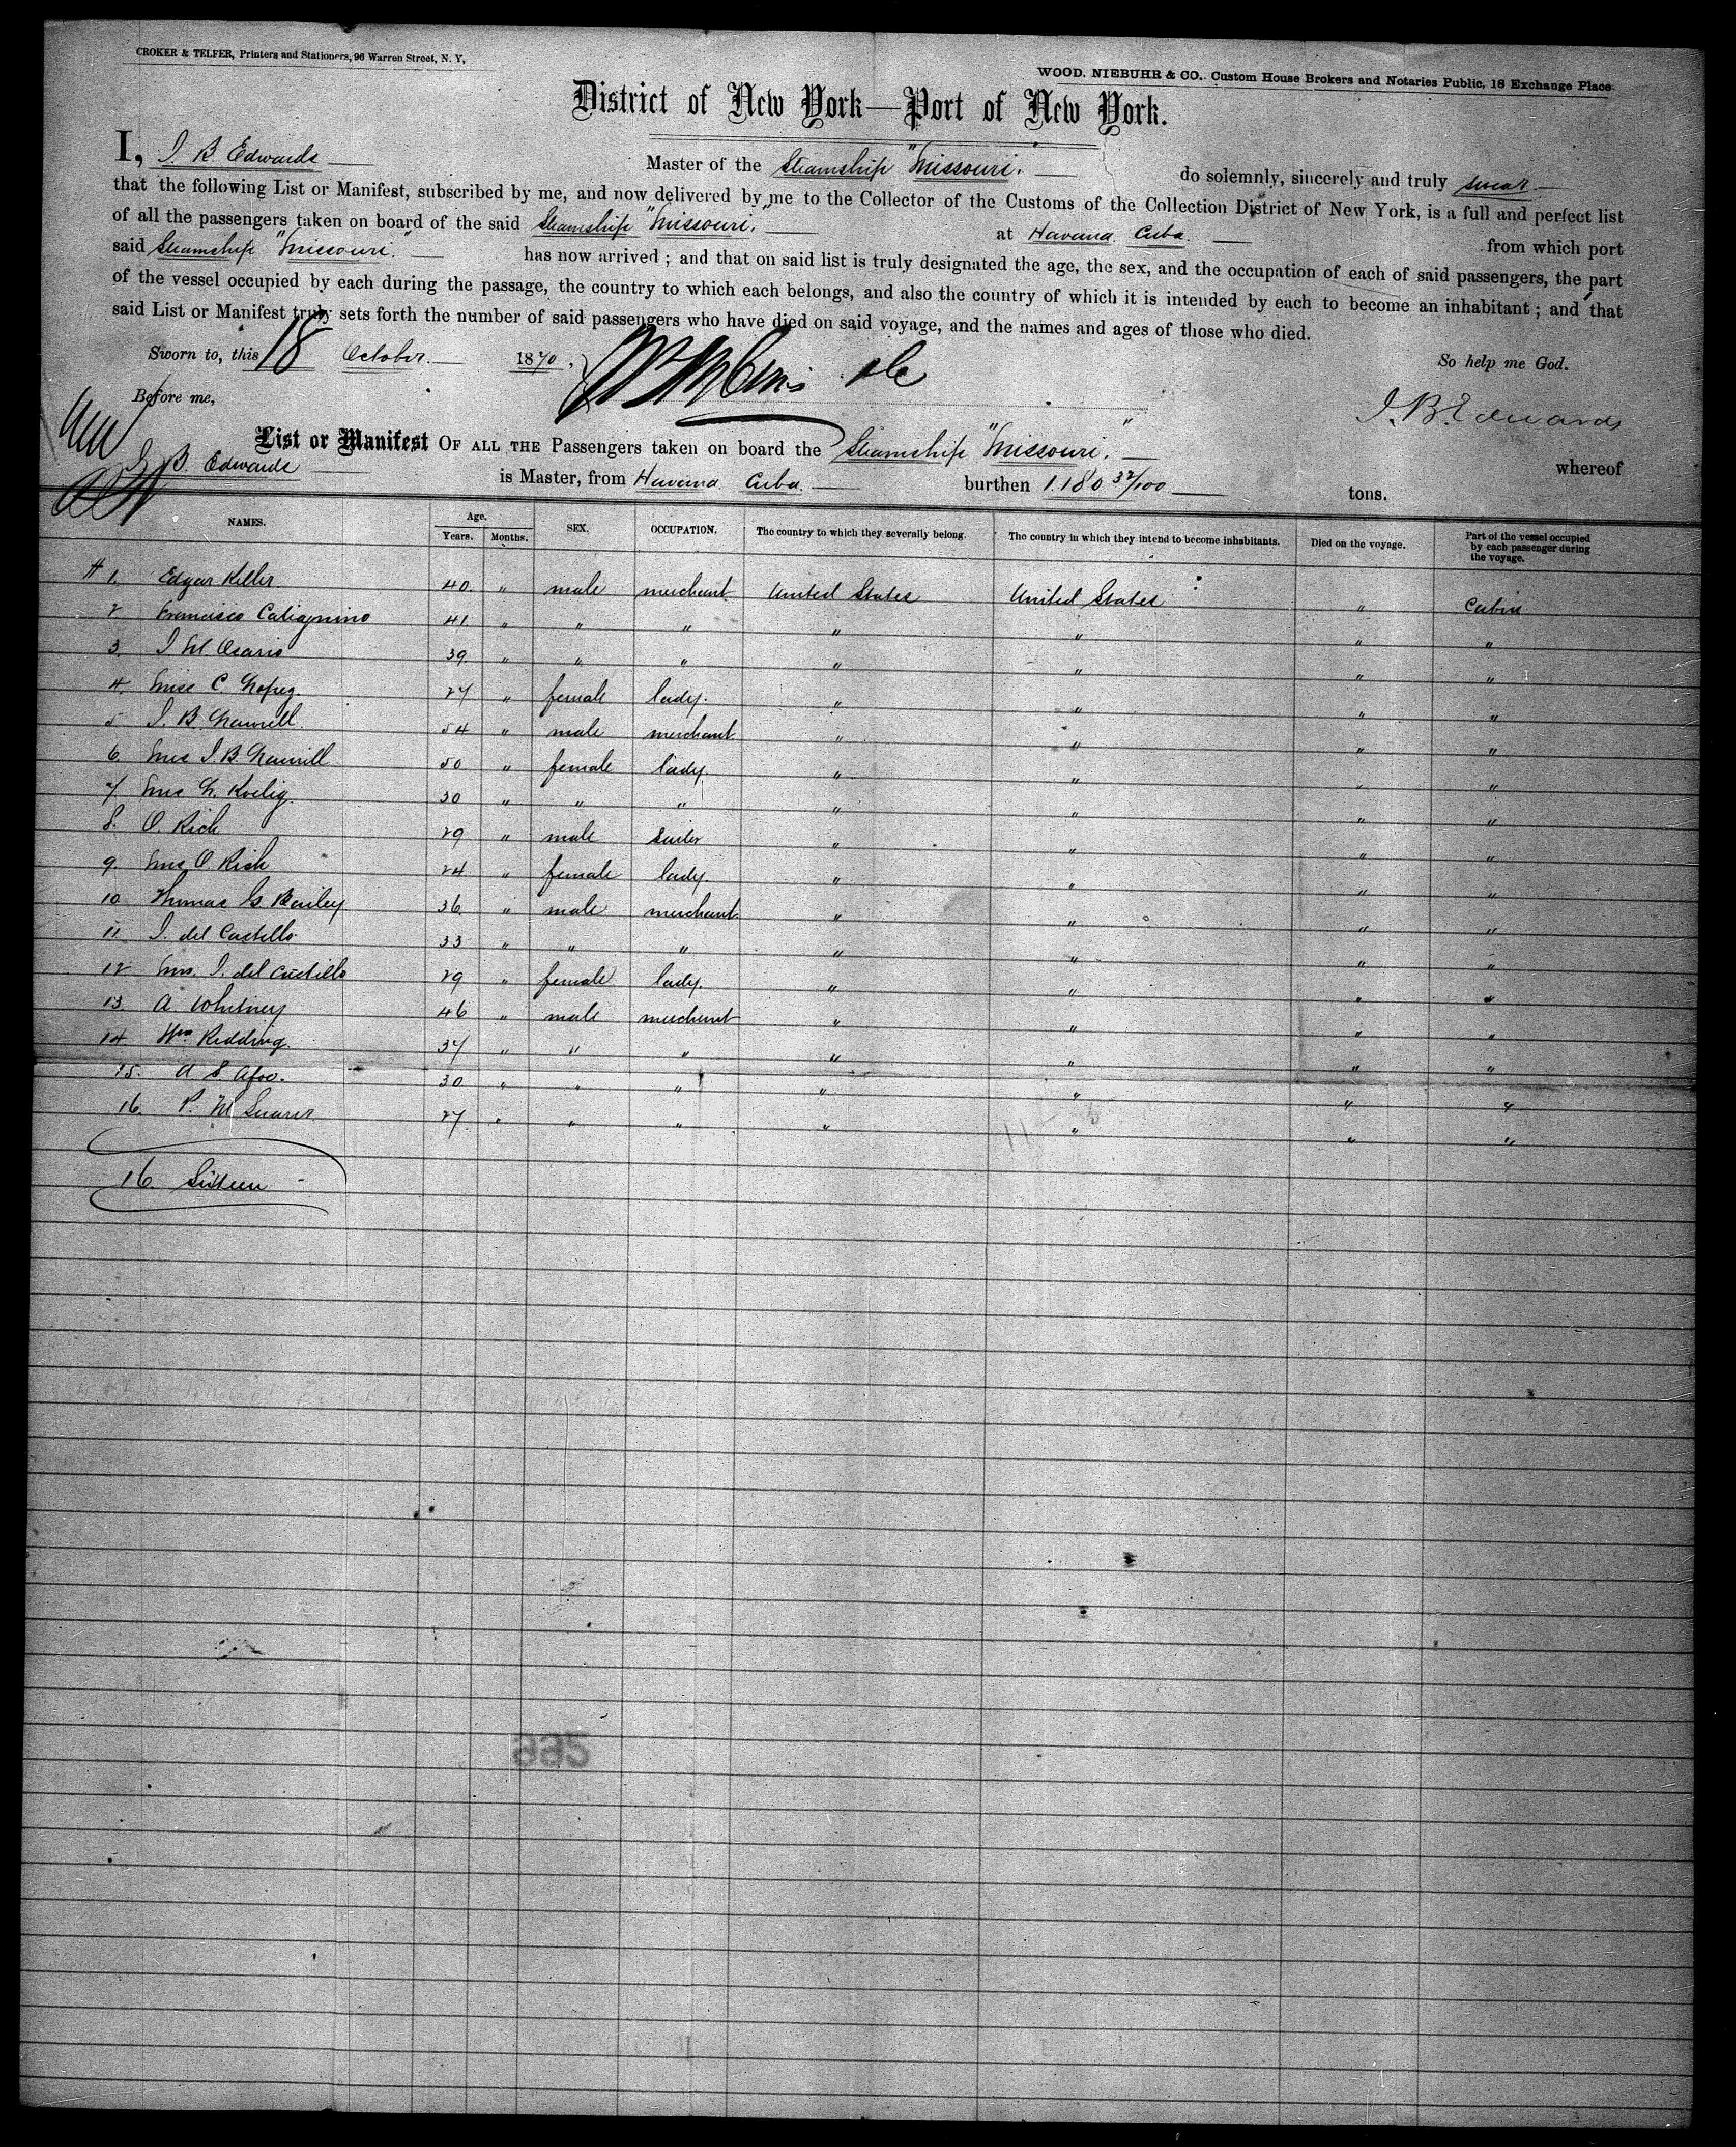 CROKER & TELFER, Printers and Stationers, 96 Warren Street, N. Y.
WOOD, NIEBUHR & CO., Custom House Brokers and Notaries Public, 18 Exchange Place.
District of New York—Port of New York.
I, J. B Edwards Master of the Steamship "Missouri." do solemnly, sincerely and truly swear
that the following List or Manifest, subscribed by me, and now delivered by me to the Collector of the Customs of the Collection District of New York, is a full and perfect list
of all the passengers taken on board of the said Steamship "Missouri." at Havana Cuba. from which port
said Steamship "Missouri." has now arrived; and that on said list is truly designated the age, the sex, and the occupation of each of said passengers, the part
of the vessel occupied by each during the passage, the country to which each belongs, and also the country of which it is intended by each to become an inhabitant; and that
said List or Manifest truly sets forth the number of said passengers who have died on said voyage, and the names and ages of those who died.
Sworn to, this 18 October. 1870. So help me God.
Before me, J. B. Edwards
List or Manifest OF ALL THE Passengers taken on board the Steamship "Missouri." whereof
J. B. Edwards is Master, from Havana Cuba. burthen 1.180 32/100 tons.
NAMES. Age. Years. Months. SEX. OCCUPATION. The country to which they severally belong. The country in which they intend to become inhabitants. Died on the voyage. Part of the vessel occupied by each passenger during the voyage.
# 1. Edgar Keller 40. " male merchant United States United States " Cabin
2. Francisco 41. " " " " " " "
3. J M Osario 39. " " " " " " "
4. C. Lopez. 27 " female lady. " " " "
5 J. B. 54 " male merchant. " " " "
6. Mrs J. B. 50 " female lady. " " " "
7. Mrs 30 " " " " " " "
8. O. Rich 29 " male " " " "
9. Mrs O. Rich 24 " female lady. " " " "
10. Thomas G Bailey 36. " male merchant. " " " "
11. J. del Castillo 33 " " " " " " "
12 Mrs. J. del Castillo 29 " female lady. " " " "
13. A Whitney 46 " male merchant " " " "
14 Wm Redding. 37 " " " " " " "
15. A S 30 " " " " " " "
16. P. M Suarez 27. " " " " " " "
16. Sixteen
299